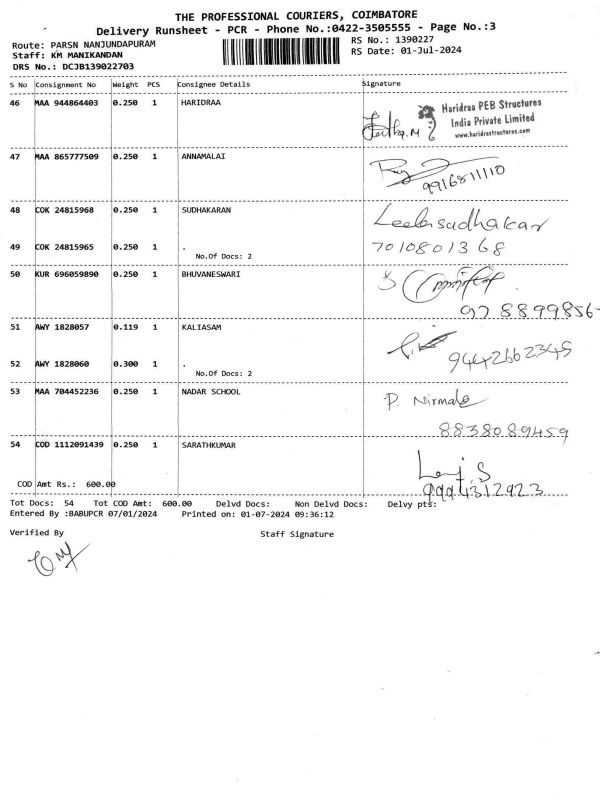 THE PROFESSIONAL COURIERS, COIMBATORE
Delivery Runsheet - PCR - Phone No.:0422-3505555 - Page No.:3
Route: PARSN NANJUNDAPURAM
Staff: KM MANIKANDAN
DRS No.: DCJB139022703
RS No.: 1390227
RS Date: 01-Jul-2024
S No Consignment No Weight PCS Consignee Details Signature
46 MAA 944864403 0.250 1 HARIDRAA
Haridraa PEB Structures
India Private Limited
www.haridrastructures.com
47 MAA 865777509 0.250 1 ANNAMALAI
9916811110
48 COK 24815968 0.250 1 SUDHAKARAN Leelasudhakar
49 COK 24815965 0.250 1 . 7010801368
No.Of Docs: 2
50 KUR 696059890 0.250 1 BHUVANESWARI
978899856-
51 AWY 1828057 0.119 1 KALIASAM
9442662345
52 AWY 1828060 0.300 1 .
No.Of Docs: 2
53 MAA 704452236 0.250 1 NADAR SCHOOL P. Nirmala
8838089459
54 COD 1112091439 0.250 1 SARATHKUMAR
COD Amt Rs.: 600.00
9994312923
Tot Docs: 54 Tot COD Amt: 600.00 Delvd Docs: Non Delvd Docs: Delvy pts:
Entered By :BABUPCR 07/01/2024 Printed on: 01-07-2024 09:36:12
Verified By Staff Signature